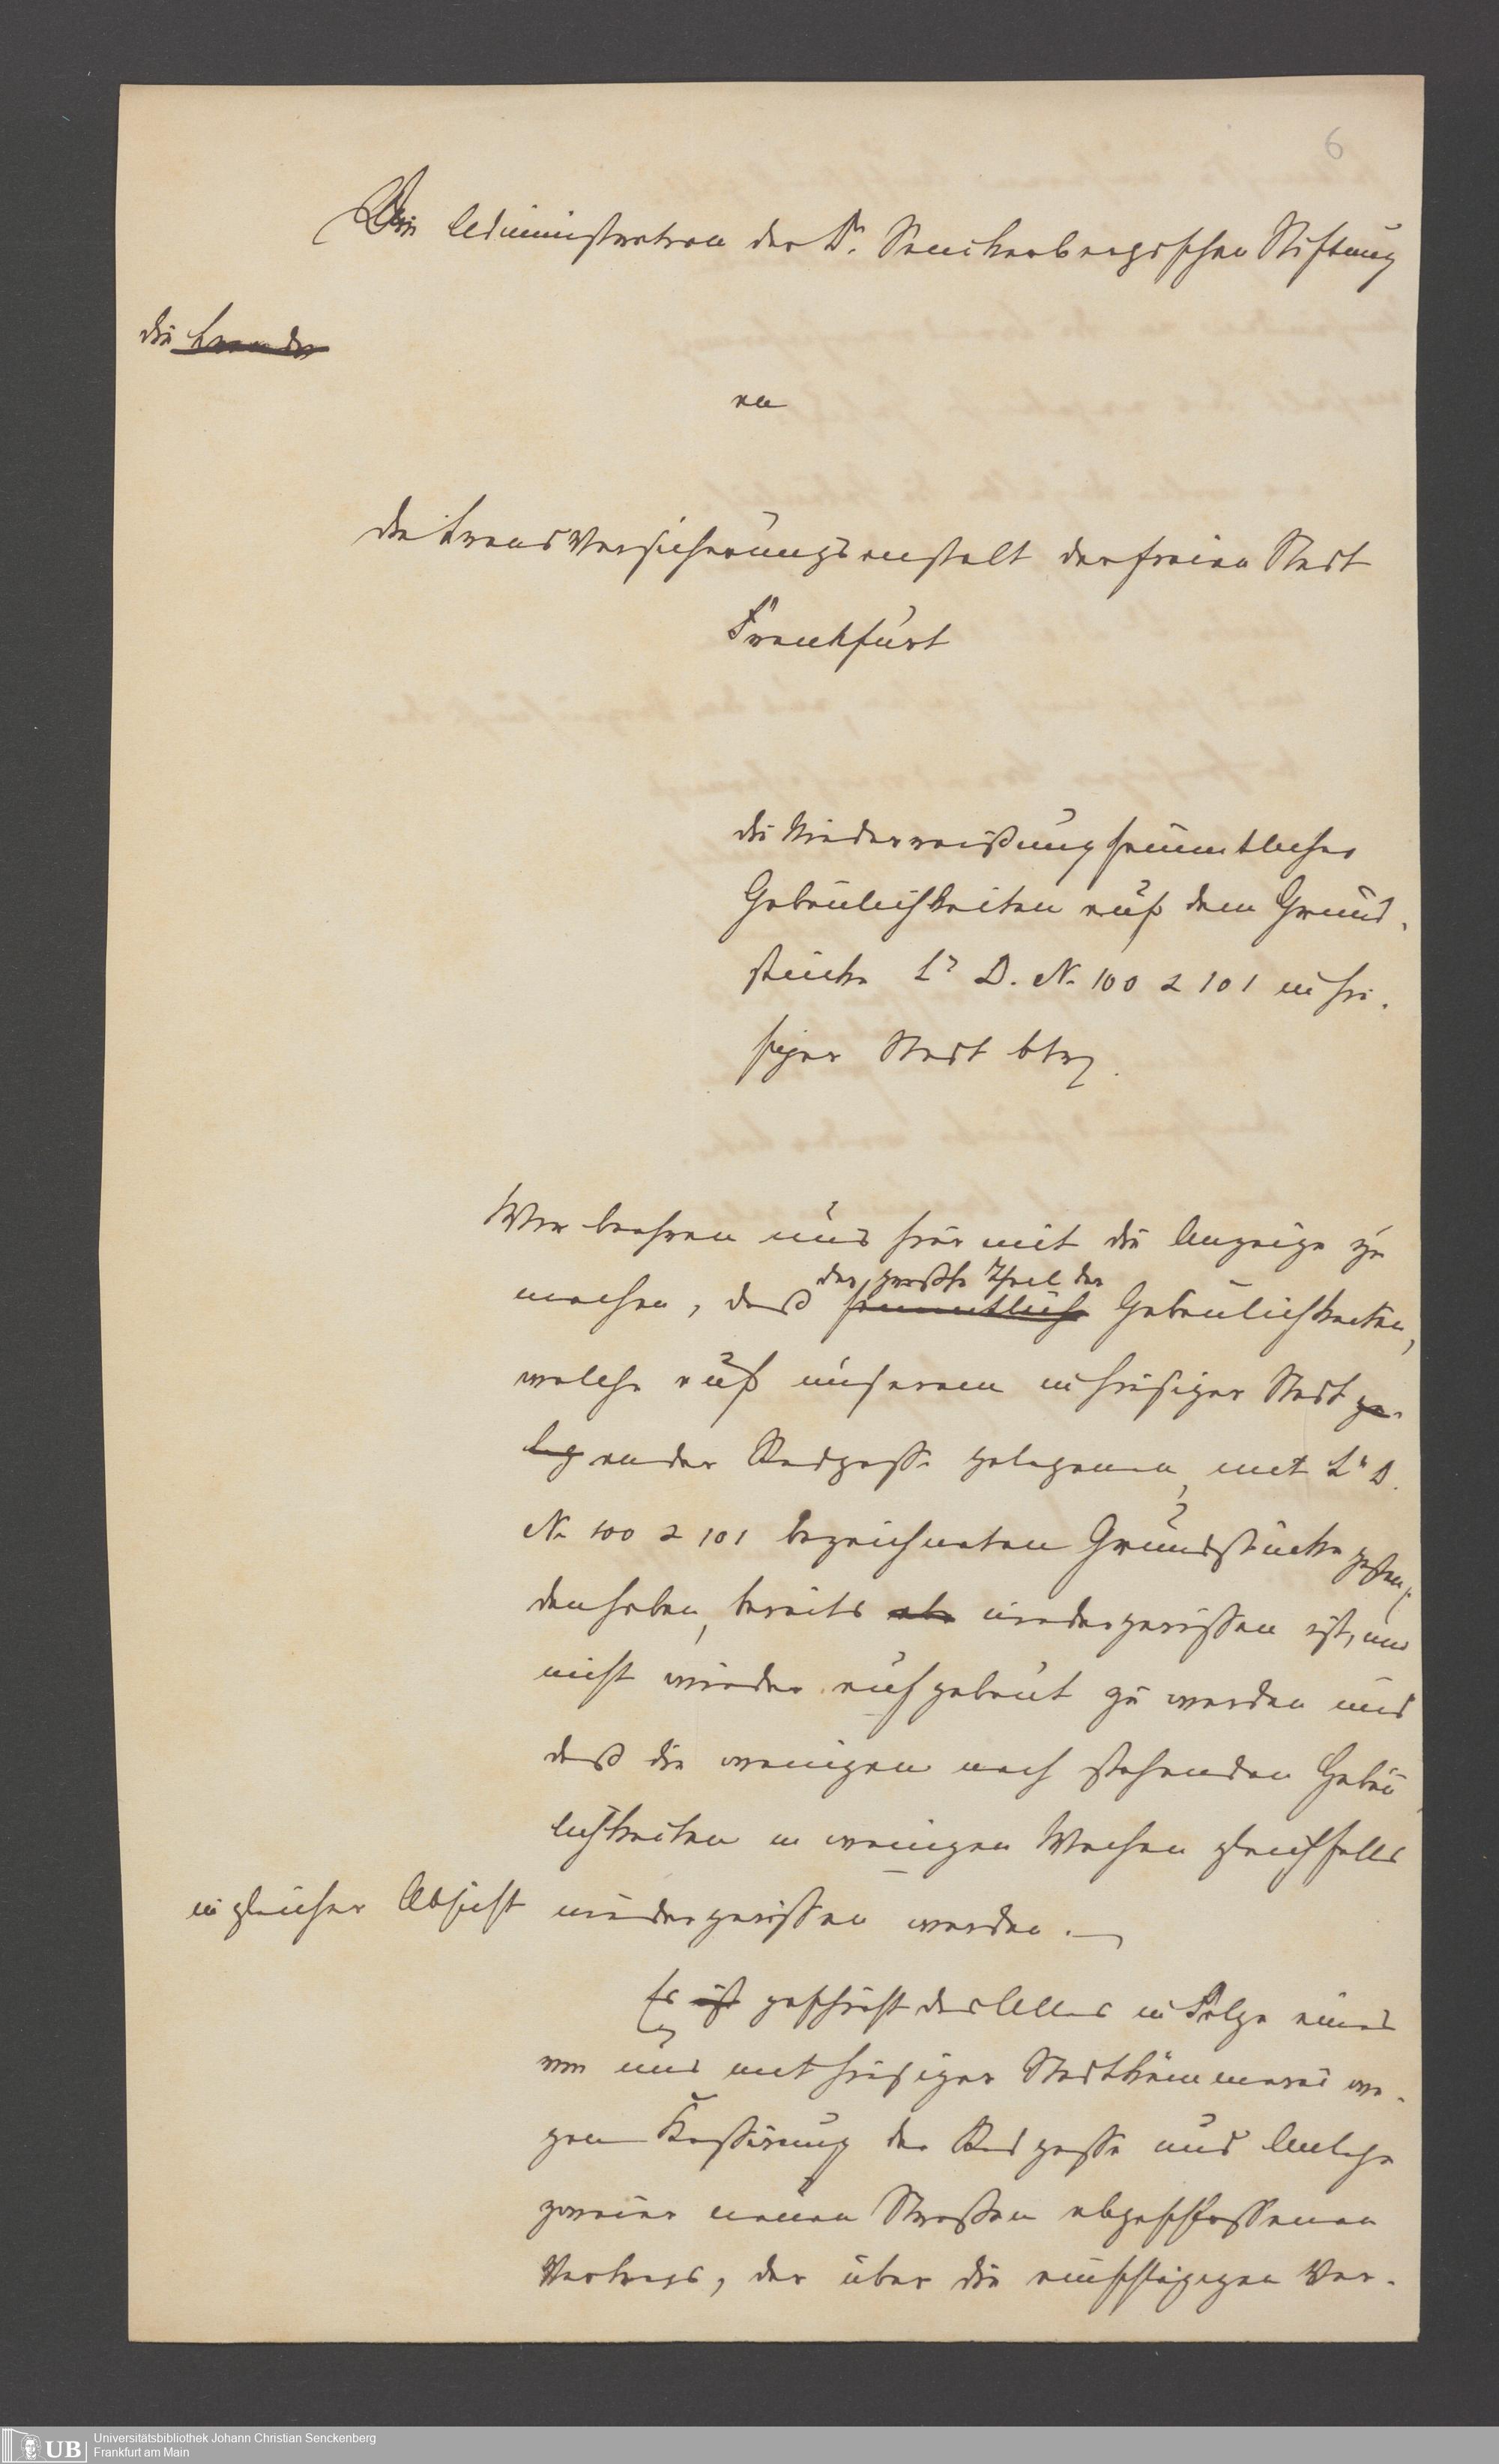 6
Die Administration der Dr. Senckenbergischen Stiftung
die Brander
an
die Brandversicherungsanstalt der freien Stadt
Frankfurt
die Niederreißung sämmtlicher
Gebäulichkeiten auf dem Grund-
stücke Lr D. No 100 & 101 in hie-
siger Stadt btr.
Wir beehren uns hiermit die Anzeige zu
der größte Theil der
machen, daß sämmtliche Gebäulichkeiten,
welche auf unserem in hiesiger Stadt ge-
leg an der Radgasse gelegenen, mit Lr D.
No 100 & 101 bezeichneten Grundstücke gestan-
den haben, bereits niedergerissen ist, um
nicht wieder aufgebaut zu werden und
daß die wenigen noch stehenden Gebäu-
lichkeiten in wenigen Wochen gleichfalls
in gleicher Absicht niedergerissen werden.
Es ist geschieht das Alles in Folge eines
von uns mit hiesiger Stadtkämmerei we-
gen Kassirung der Radgasse und Anlage
zweier neuen Straßen abgeschlossenen
Vertrags, der über die einschlägigen Ver-
UB
Universitätsbibliothek Johann Christian Senckenberg
Frankfurt am Main